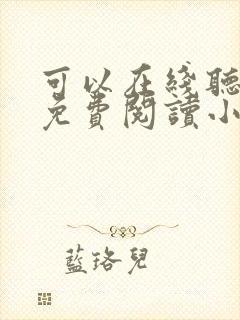 可以在綫聽
免費閱讀小
藍珞兒